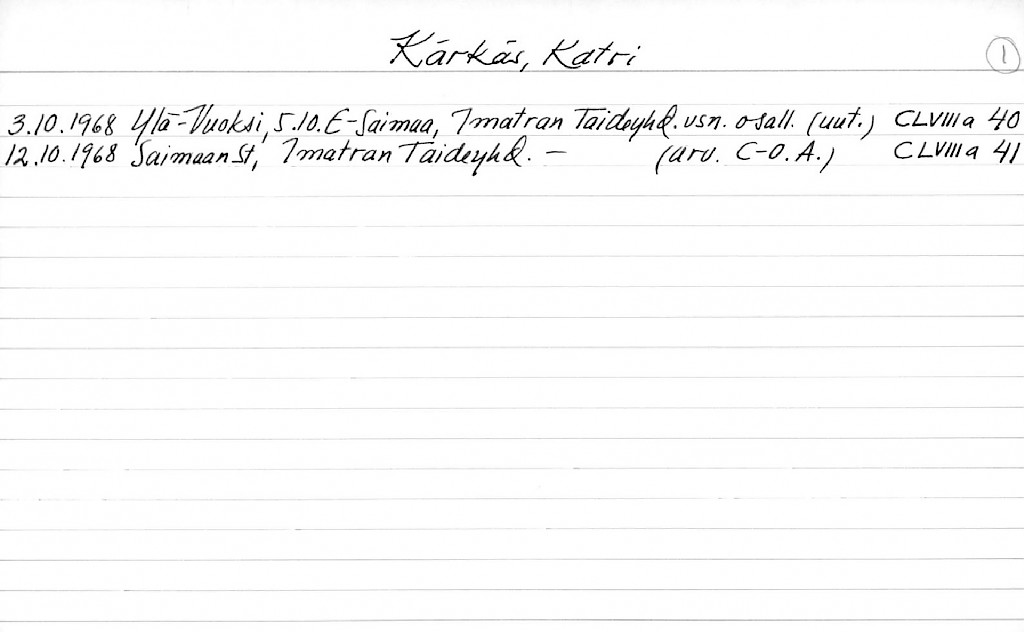 Kärkäs, Katri 1
3.10.1968 Ylä-Vuoksi, 5.10. E-Saimaa, Imatran Taideyhd. vsn. osall. (uut.) CLVIIIa 40
12.10.1968 Saimaan St, Imatran Taideyhd. — (arv. C-O.A.) CLVIIIa 41